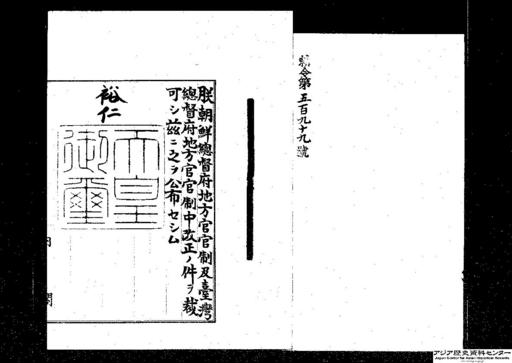 勅令第五百九十九號
朕朝鮮總督府地方官官制及臺灣
總督府地方官官制中改正ノ件ヲ裁
可シ茲ニ之ヲ公布セシム
裕仁
天皇
御璽
内閣
アジア歴史資料センター
Japan Center for Asian Historical Records